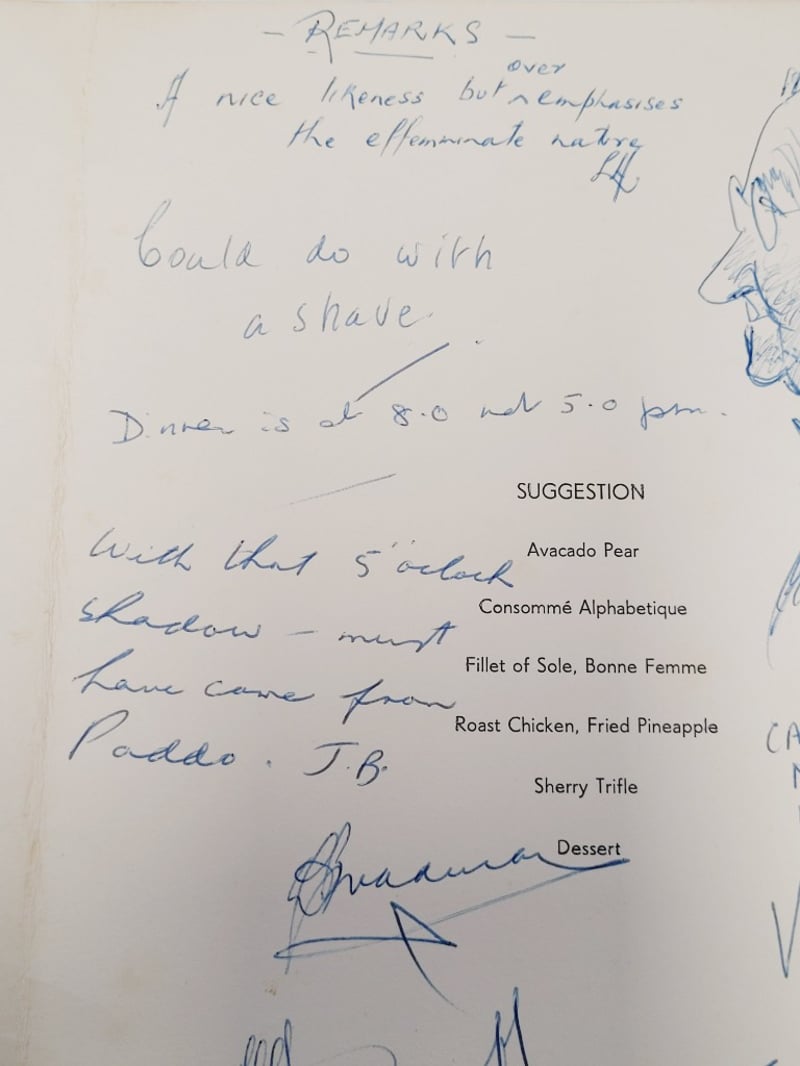 - REMARKS -
A nice likeness but over emphasises
the effemminate nature
LH
Could do with
a shave.
Dinner is at 8.0 not 5.0 pm.
With that 5 o'clock
shadow - must
have come from
Paddo. J.B.
SUGGESTION
Avacado Pear
Consommé Alphabetique
Fillet of Sole, Bonne Femme
Roast Chicken, Fried Pineapple
Sherry Trifle
Dessert
CA